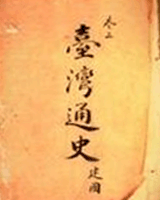 卷上
臺灣通史
建國